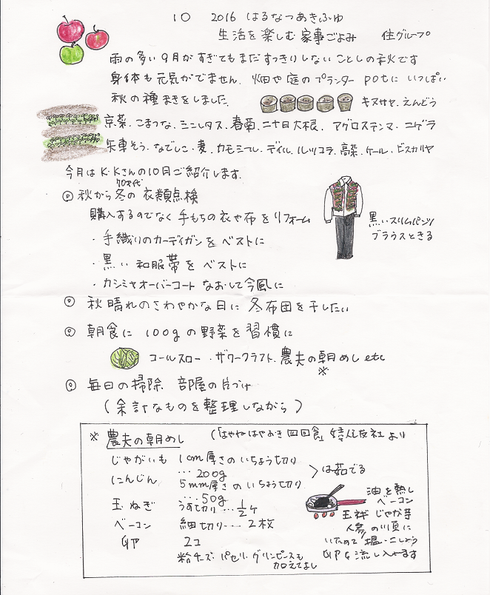 10 2016 はるなつあきふゆ
生活を楽しむ家事ごよみ 住グループ
雨の多い9月がすぎてもまだすっきりしないことしの秋です
身体も元気がでません. 畑や庭のプランター potに いっぱい
秋の種まきをしました. キヌサヤ. えんどう
京菜. こまつな. ミニレタス. 春菊. 二十日大根. アグロステンマ. ニゲラ
矢車そう. なでしこ. 麦. カモミール. デイル. ルッコラ. 高菜. ケール. ビスカリヤ
今月は K.Kさんの10月ご紹介します.
秋から冬の衣類点検
購入するのでなく 手もちの衣や布をリフォーム
・手織りのカーディガンをベストに
・黒い和服帯をベストに
・カシミヤオーバーコート なおして今風に
黒いスリムパンツ
ブラウスときる
秋晴れのさわやかな日に 冬布団を干したい
朝食に 100gの野菜を習慣に
コールスロー・ザワークラフト. 農夫の朝めし etc
※
毎日の掃除 部屋の片づけ
(余計なものを整理しながら)
※ 農夫の朝めし (「はやねはやおき四回食」婦人之友社より
じゃがいも 1cm厚さのいちょう切り
…200g
にんじん 5mm厚さのいちょう切り
…50g
>は茹でる
玉ねぎ うす切り…1/2ヶ
ベーコン 細切り…2枚
卵 2コ
粉チーズ・パセリ・グリンピースも
加えてよし
油を熱し
ベーコン
玉ネギ じゃが芋
人参の順に
いためて 塩・こしょう
卵を流し入れます